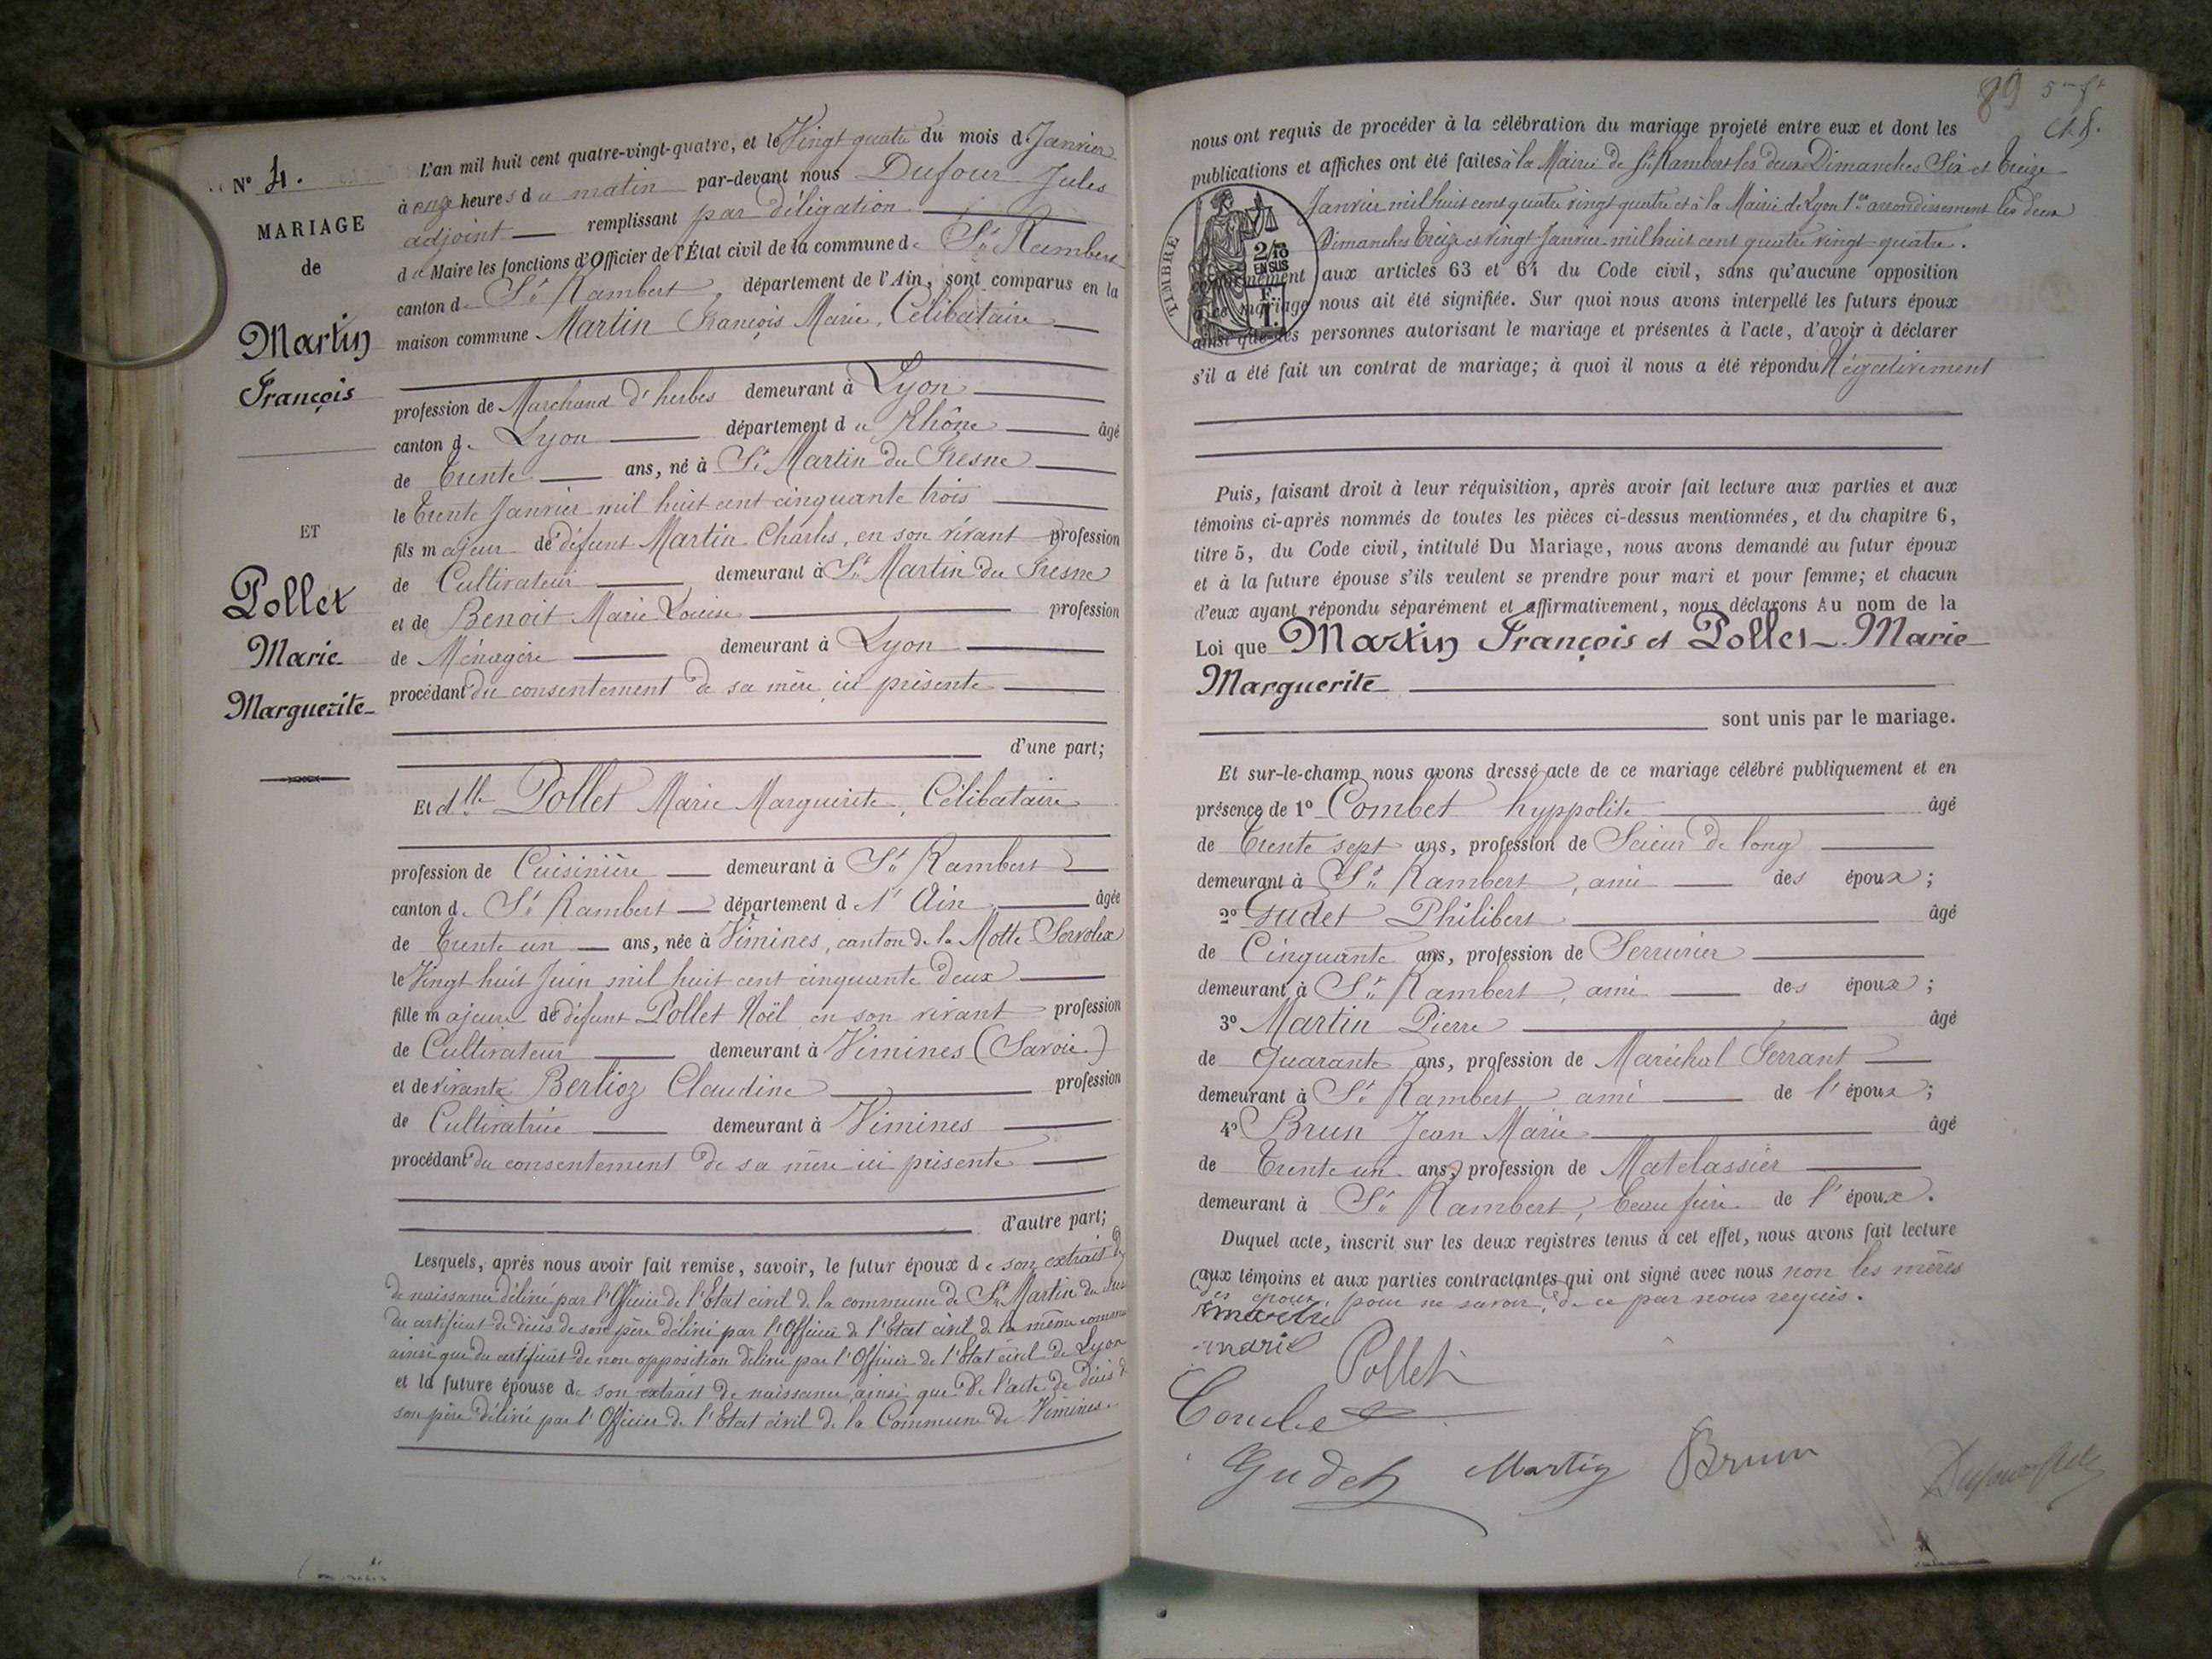 N° 4.
MARIAGE
de
Martin
François
ET
Pollet
Marie
Marguerite
L'an mil huit cent quatre-vingt-quatre, et le Vingt quatre du mois de Janvier
à onze heures du matin par-devant nous Dufour Jules
adjoint remplissant par déligation
du Maire les fonctions d'Officier de l'État civil de la commune de St Rambert
canton de St Rambert, département de l'Ain, sont comparus en la
maison commune Martin François Marie, Célibataire
profession de Marchand d'herbes demeurant à Lyon
canton de Lyon département du Rhône âgé
de trente ans, né à St Martin du Fresne
le trente Janvier mil huit cent cinquante trois
fils majeur de défunt Martin Charles, en son vivant profession
de Cultivateur demeurant à St Martin du Fresne
et de Benoit Marie Louise profession
de Ménagère demeurant à Lyon
procédant du consentement de sa mère ici présente
d'une part;
Et dlle Pollet Marie Marguerite, Célibataire
profession de Cuisinière demeurant à St Rambert
canton de St Rambert département de l'Ain âgée
de trente un ans, née à Vimines, canton de la Motte Servolex
le Vingt huit Juin mil huit cent cinquante deux
fille majeure de défunt Pollet Noël en son vivant profession
de Cultivateur demeurant à Vimines (Savoie)
et de vivante Berlioz Claudine profession
de Cultivatrice demeurant à Vimines
procédant du consentement de sa mère ici présente
d'autre part;
Lesquels, après nous avoir fait remise, savoir, le futur époux de son extrait
de naissance délivré par l'Officier de l'Etat civil de la commune de St Martin du
du certificat de décès de son père délivré par l'Officier de l'Etat civil de la même
ainsi que du certificat de non opposition délivré par l'Officier de l'Etat civil de Lyon
et la future épouse de son extrait de naissance ainsi que de l'acte de décès de
son père délivré par l'Officier de l'Etat civil de la Commune de Vimines.
89
nous ont requis de procéder à la célébration du mariage projeté entre eux et dont les
publications et affiches ont été faites à la Mairie de St Rambert les deux Dimanches Six et treize
Janvier mil huit cent quatre vingt quatre et à la Mairie de Lyon 1er arrondissement les deux
Dimanches treize et vingt Janvier mil huit cent quatre vingt quatre.
TIMBRE
2/10
EN SUS
F.
I.
conformément aux articles 63 et 64 du Code civil, sans qu'aucune opposition
à ce mariage nous ait été signifiée. Sur quoi nous avons interpellé les futurs époux
ainsi que les personnes autorisant le mariage et présentes à l'acte, d'avoir à déclarer
s'il a été fait un contrat de mariage; à quoi il nous a été répondu Négativement
Puis, faisant droit à leur réquisition, après avoir fait lecture aux parties et aux
témoins ci-après nommés de toutes les pièces ci-dessus mentionnées, et du chapitre 6,
titre 5, du Code civil, intitulé Du Mariage, nous avons demandé au futur époux
et à la future épouse s'ils veulent se prendre pour mari et pour femme; et chacun
d'eux ayant répondu séparément et affirmativement, nous déclarons Au nom de la
Loi que Martin François et Pollet Marie
Marguerite
sont unis par le mariage.
Et sur-le-champ nous avons dressé acte de ce mariage célébré publiquement et en
présence de 1° Combet hyppolite âgé
de trente sept ans, profession de Scieur de long
demeurant à St Rambert, ami des époux;
2° Gudet Philibert âgé
de Cinquante ans, profession de Serrurier
demeurant à St Rambert, ami des époux;
3° Martin Pierre âgé
de quarante ans, profession de Maréchal Ferrant
demeurant à St Rambert ami de l'époux;
4° Brun Jean Marie âgé
de trente un ans, profession de Matelassier
demeurant à St Rambert, beau frère de l'époux.
Duquel acte, inscrit sur les deux registres tenus à cet effet, nous avons fait lecture
aux témoins et aux parties contractantes qui ont signé avec nous non les mères
des époux, pour ne savoir, de ce par nous requis.
marie
Pollet
Combet
Gudet Martin Brun